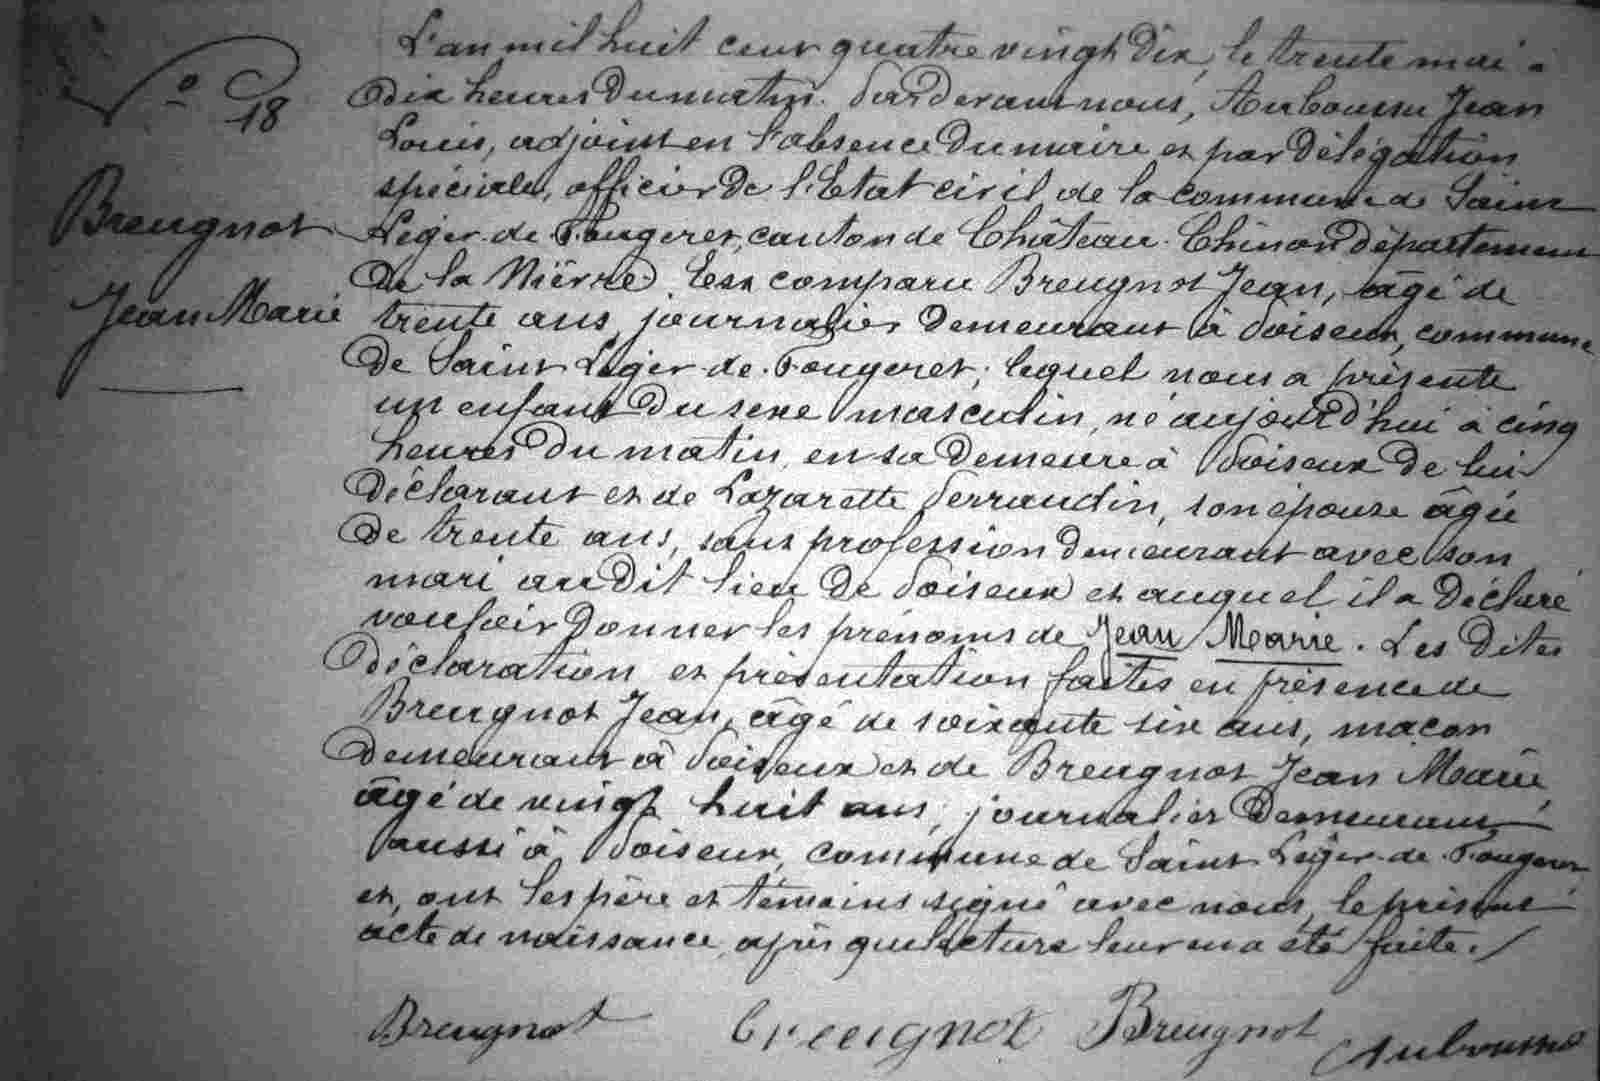 L'an mil huit cent quatre vingt dix, le trente mai à
dix heures du matin. Par devant nous, Auboussu Jean
Louis, adjoint en l'absence du maire et par délégation
spéciale, officier de l'Etat civil de la commune de Saint
Léger-de-Fougeret, canton de Château-Chinon département
de la Nièvre. Est comparu Breugnot Jean, âgé de
trente ans, journalier demeurant à Poiseux, commune
de Saint Léger-de-Fougeret; lequel nous a présenté
un enfant du sexe masculin, né aujourd'hui à cinq
heures du matin, en sa demeure à Poiseux de lui
déclarant et de Lazarette Perraudin, son épouse âgée
de trente ans, sans profession demeurant avec son
mari au dit lieu de Poiseux et auquel il a déclaré
vouloir donner les prénoms de Jean Marie. Les dites
déclaration et présentation faites en présence de
Breugnot Jean, âgé de soixante six ans, maçon
demeurant à Poiseux et de Breugnot Jean Marie,
âgé de vingt huit ans, journalier demeurant
aussi à Poiseux, commune de Saint Léger-de-Fougeret
et, ont les père et témoins signé avec nous, le présent
acte de naissance, après que lecture leur en a été faite.
N° 18
Breugnot
Jean Marie
Breugnot Breugnot Breugnot